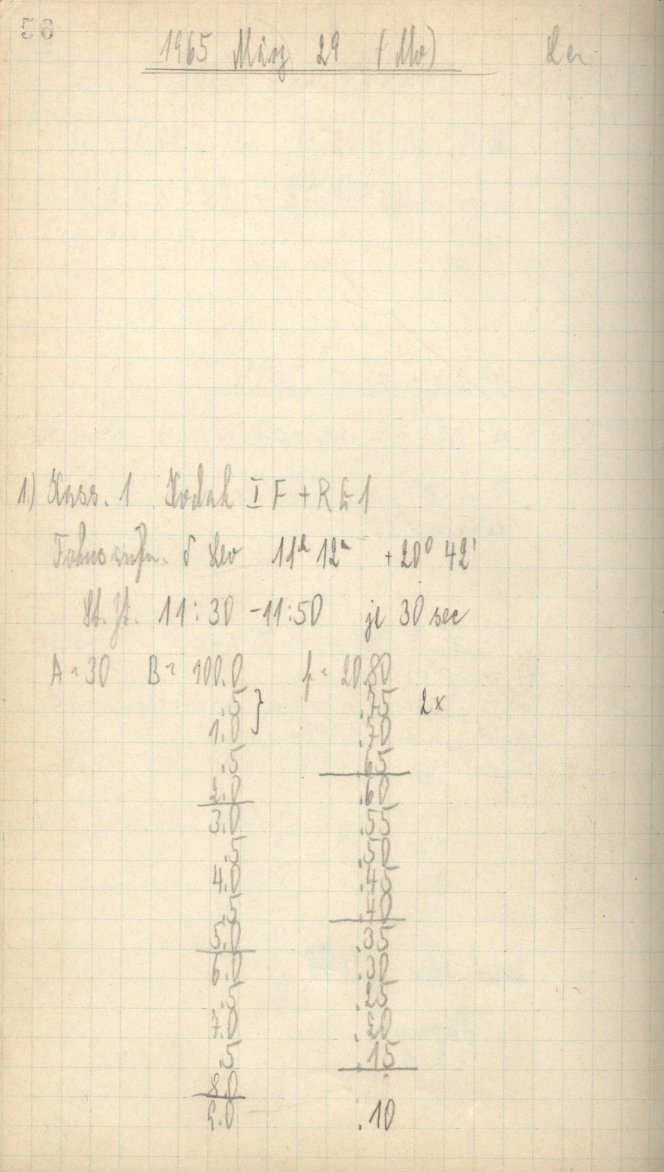 56
1965 März 29 (Mo)
1) Kass. 1 Kodak I F + RG1
Fokus δ Leo 11h 12m +20° 42'
St. Zt. 11:30 - 11:50 je 30 sec
A = 30 B = 100.0 f = 20.80
.5 } .75 2x
1.0 .70
.5 .65
2.0 .60
3.0 .55
.5 .50
4.0 .45
.5 .40
5.0 .35
6.0 .30
.5 .25
7.0 .20
.5 .15
8.0
9.0 .10